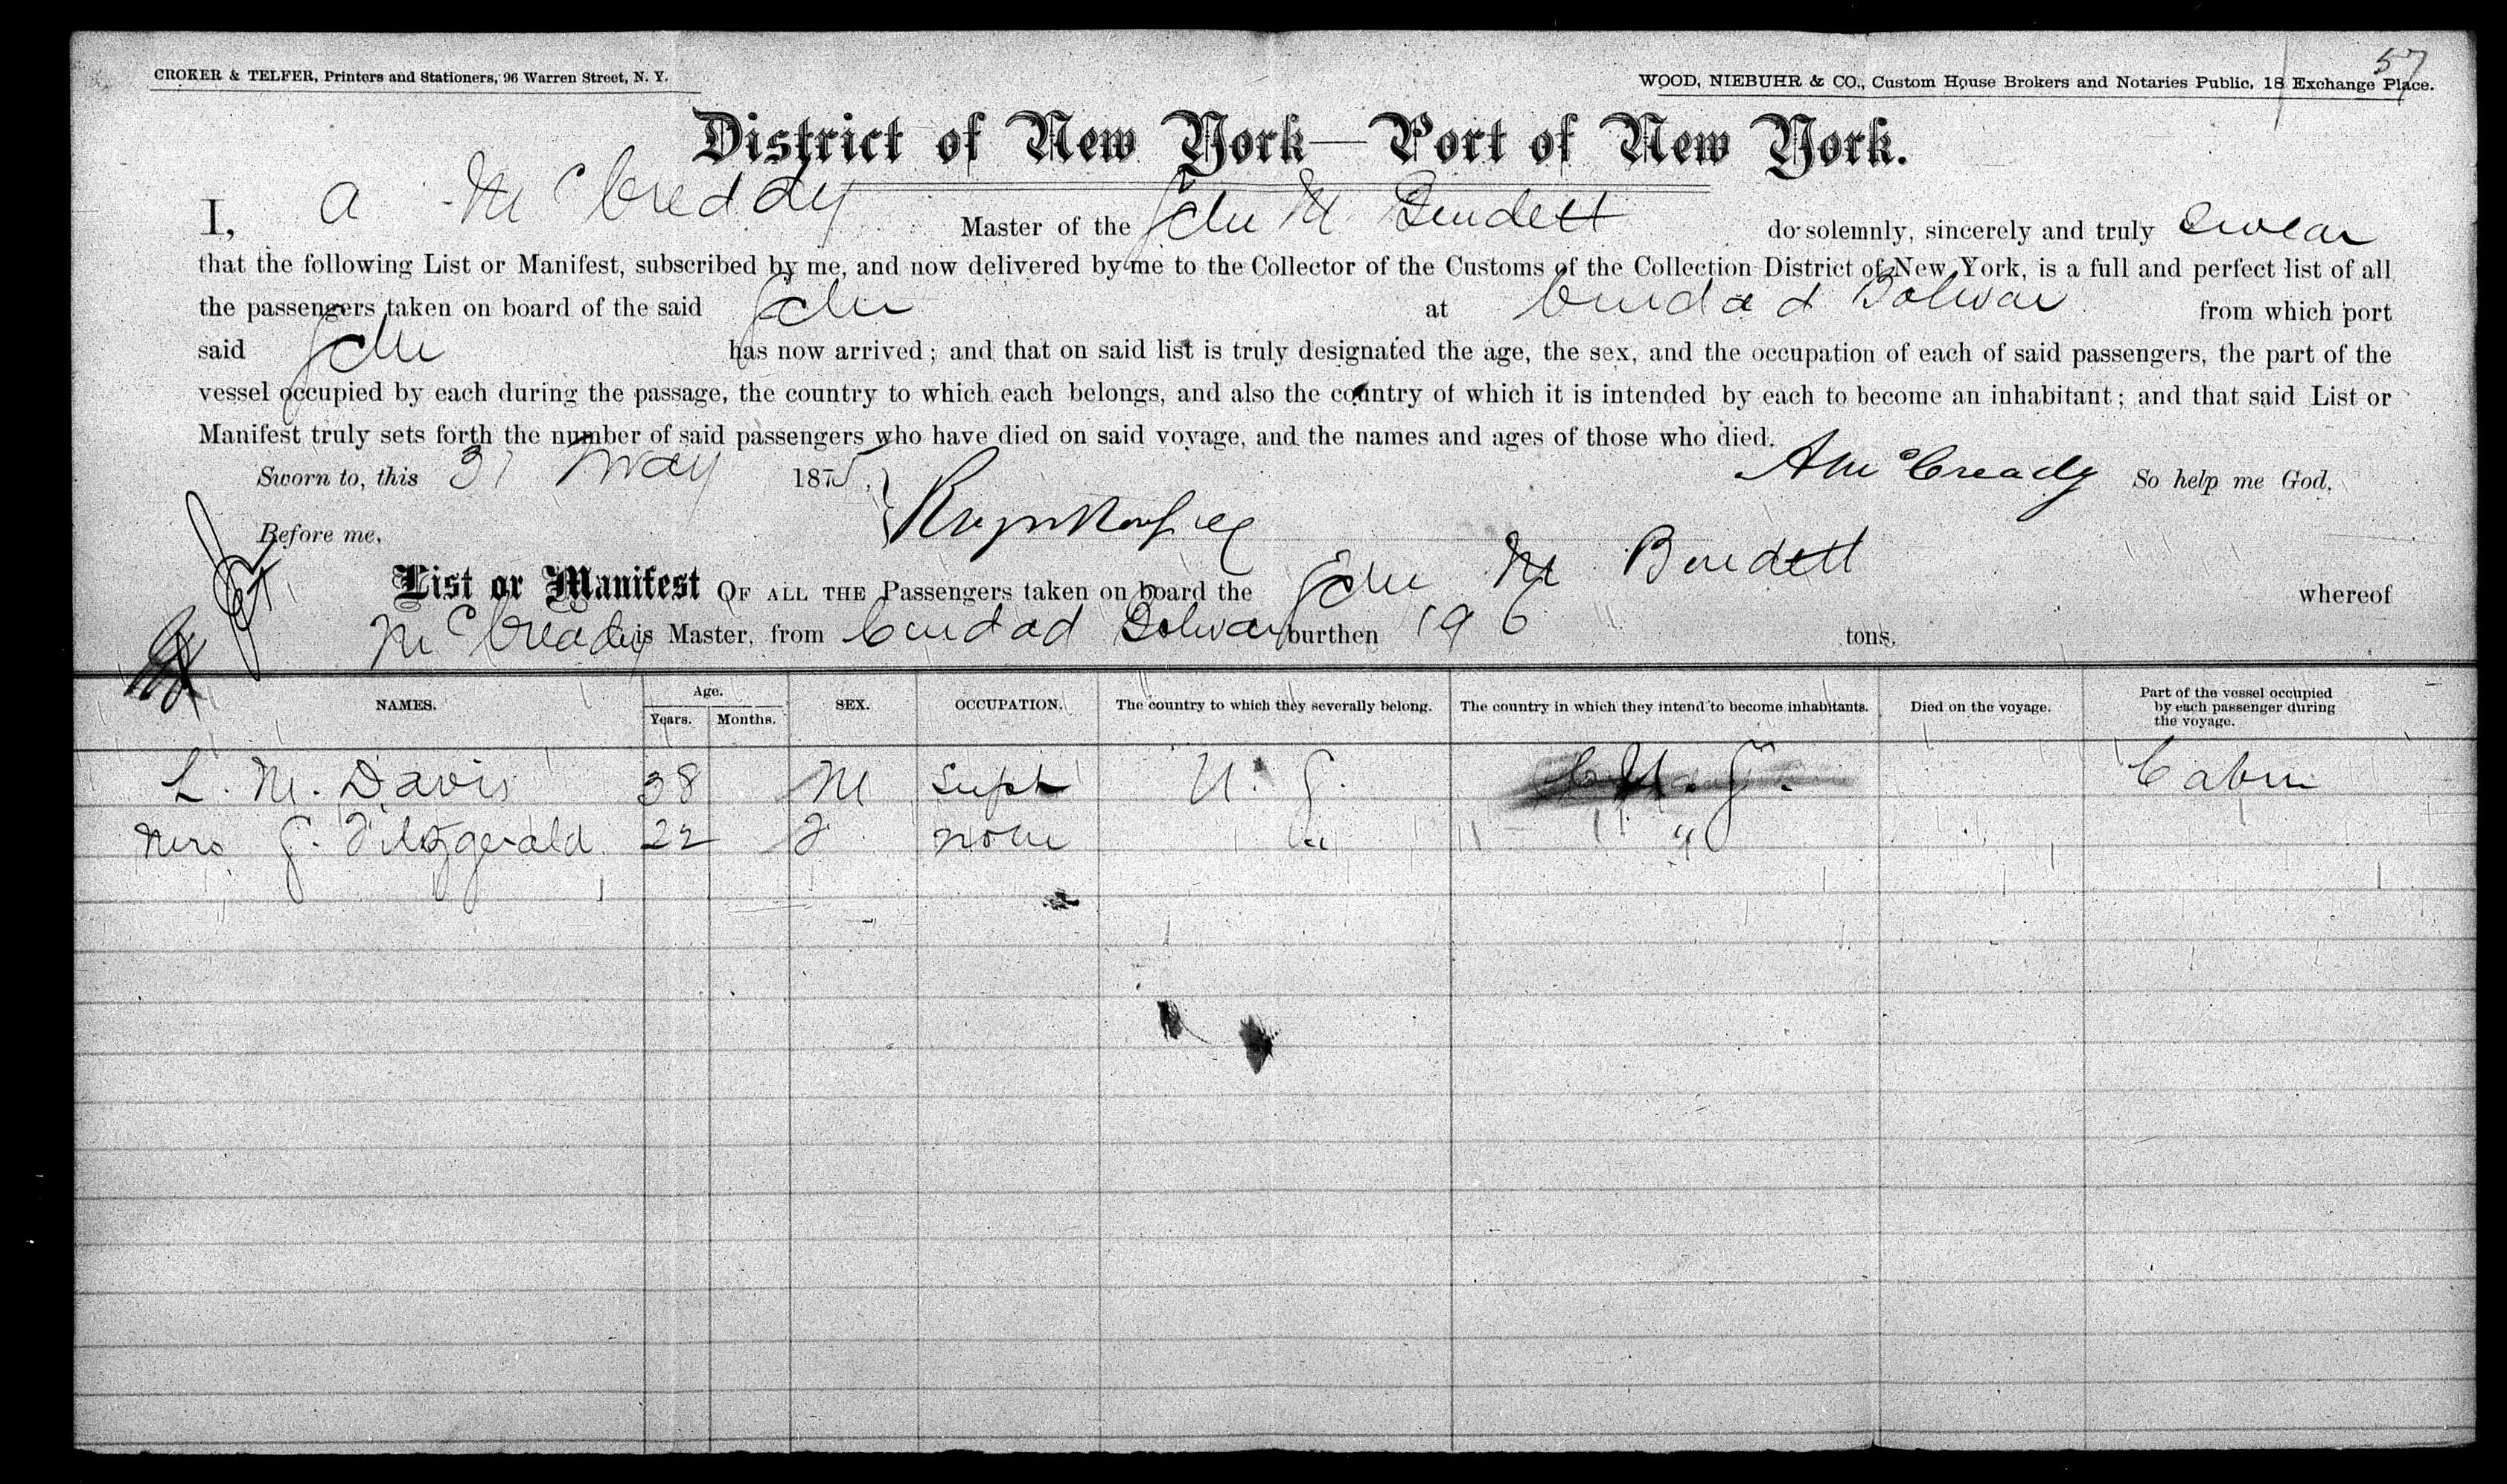 57
CROKER & TELFER, Printers and Stationers, 96 Warren Street, N. Y. WOOD, NIEBUHR & CO., Custom House Brokers and Notaries Public, 18 Exchange Place.
District of New York—Port of New York.
I, A McCreddy Master of the Schr M. Burdett do solemnly, sincerely and truly swear
that the following List or Manifest, subscribed by me, and now delivered by me to the Collector of the Customs of the Collection District of New York, is a full and perfect list of all
the passengers taken on board of the said Schr at Ciudad Bolivar from which port
said Schr has now arrived; and that on said list is truly designated the age, the sex, and the occupation of each of said passengers, the part of the
vessel occupied by each during the passage, the country to which each belongs, and also the country of which it is intended by each to become an inhabitant; and that said List or
Manifest truly sets forth the number of said passengers who have died on said voyage, and the names and ages of those who died.
Sworn to, this 31 May 1875, A McCready So help me God,
Before me,
List or Manifest OF ALL THE Passengers taken on board the Schr M Burdett whereof
McCready is Master, from Ciudad Bolivar burthen 196 tons.
NAMES. Age. Years. Months. SEX. OCCUPATION. The country to which they severally belong. The country in which they intend to become inhabitants. Died on the voyage. Part of the vessel occupied by each passenger during the voyage.
L. M. Davis 38 M Supt U. S. U. S. Cabin
Mrs G. Fitzgerald 22 F none " "